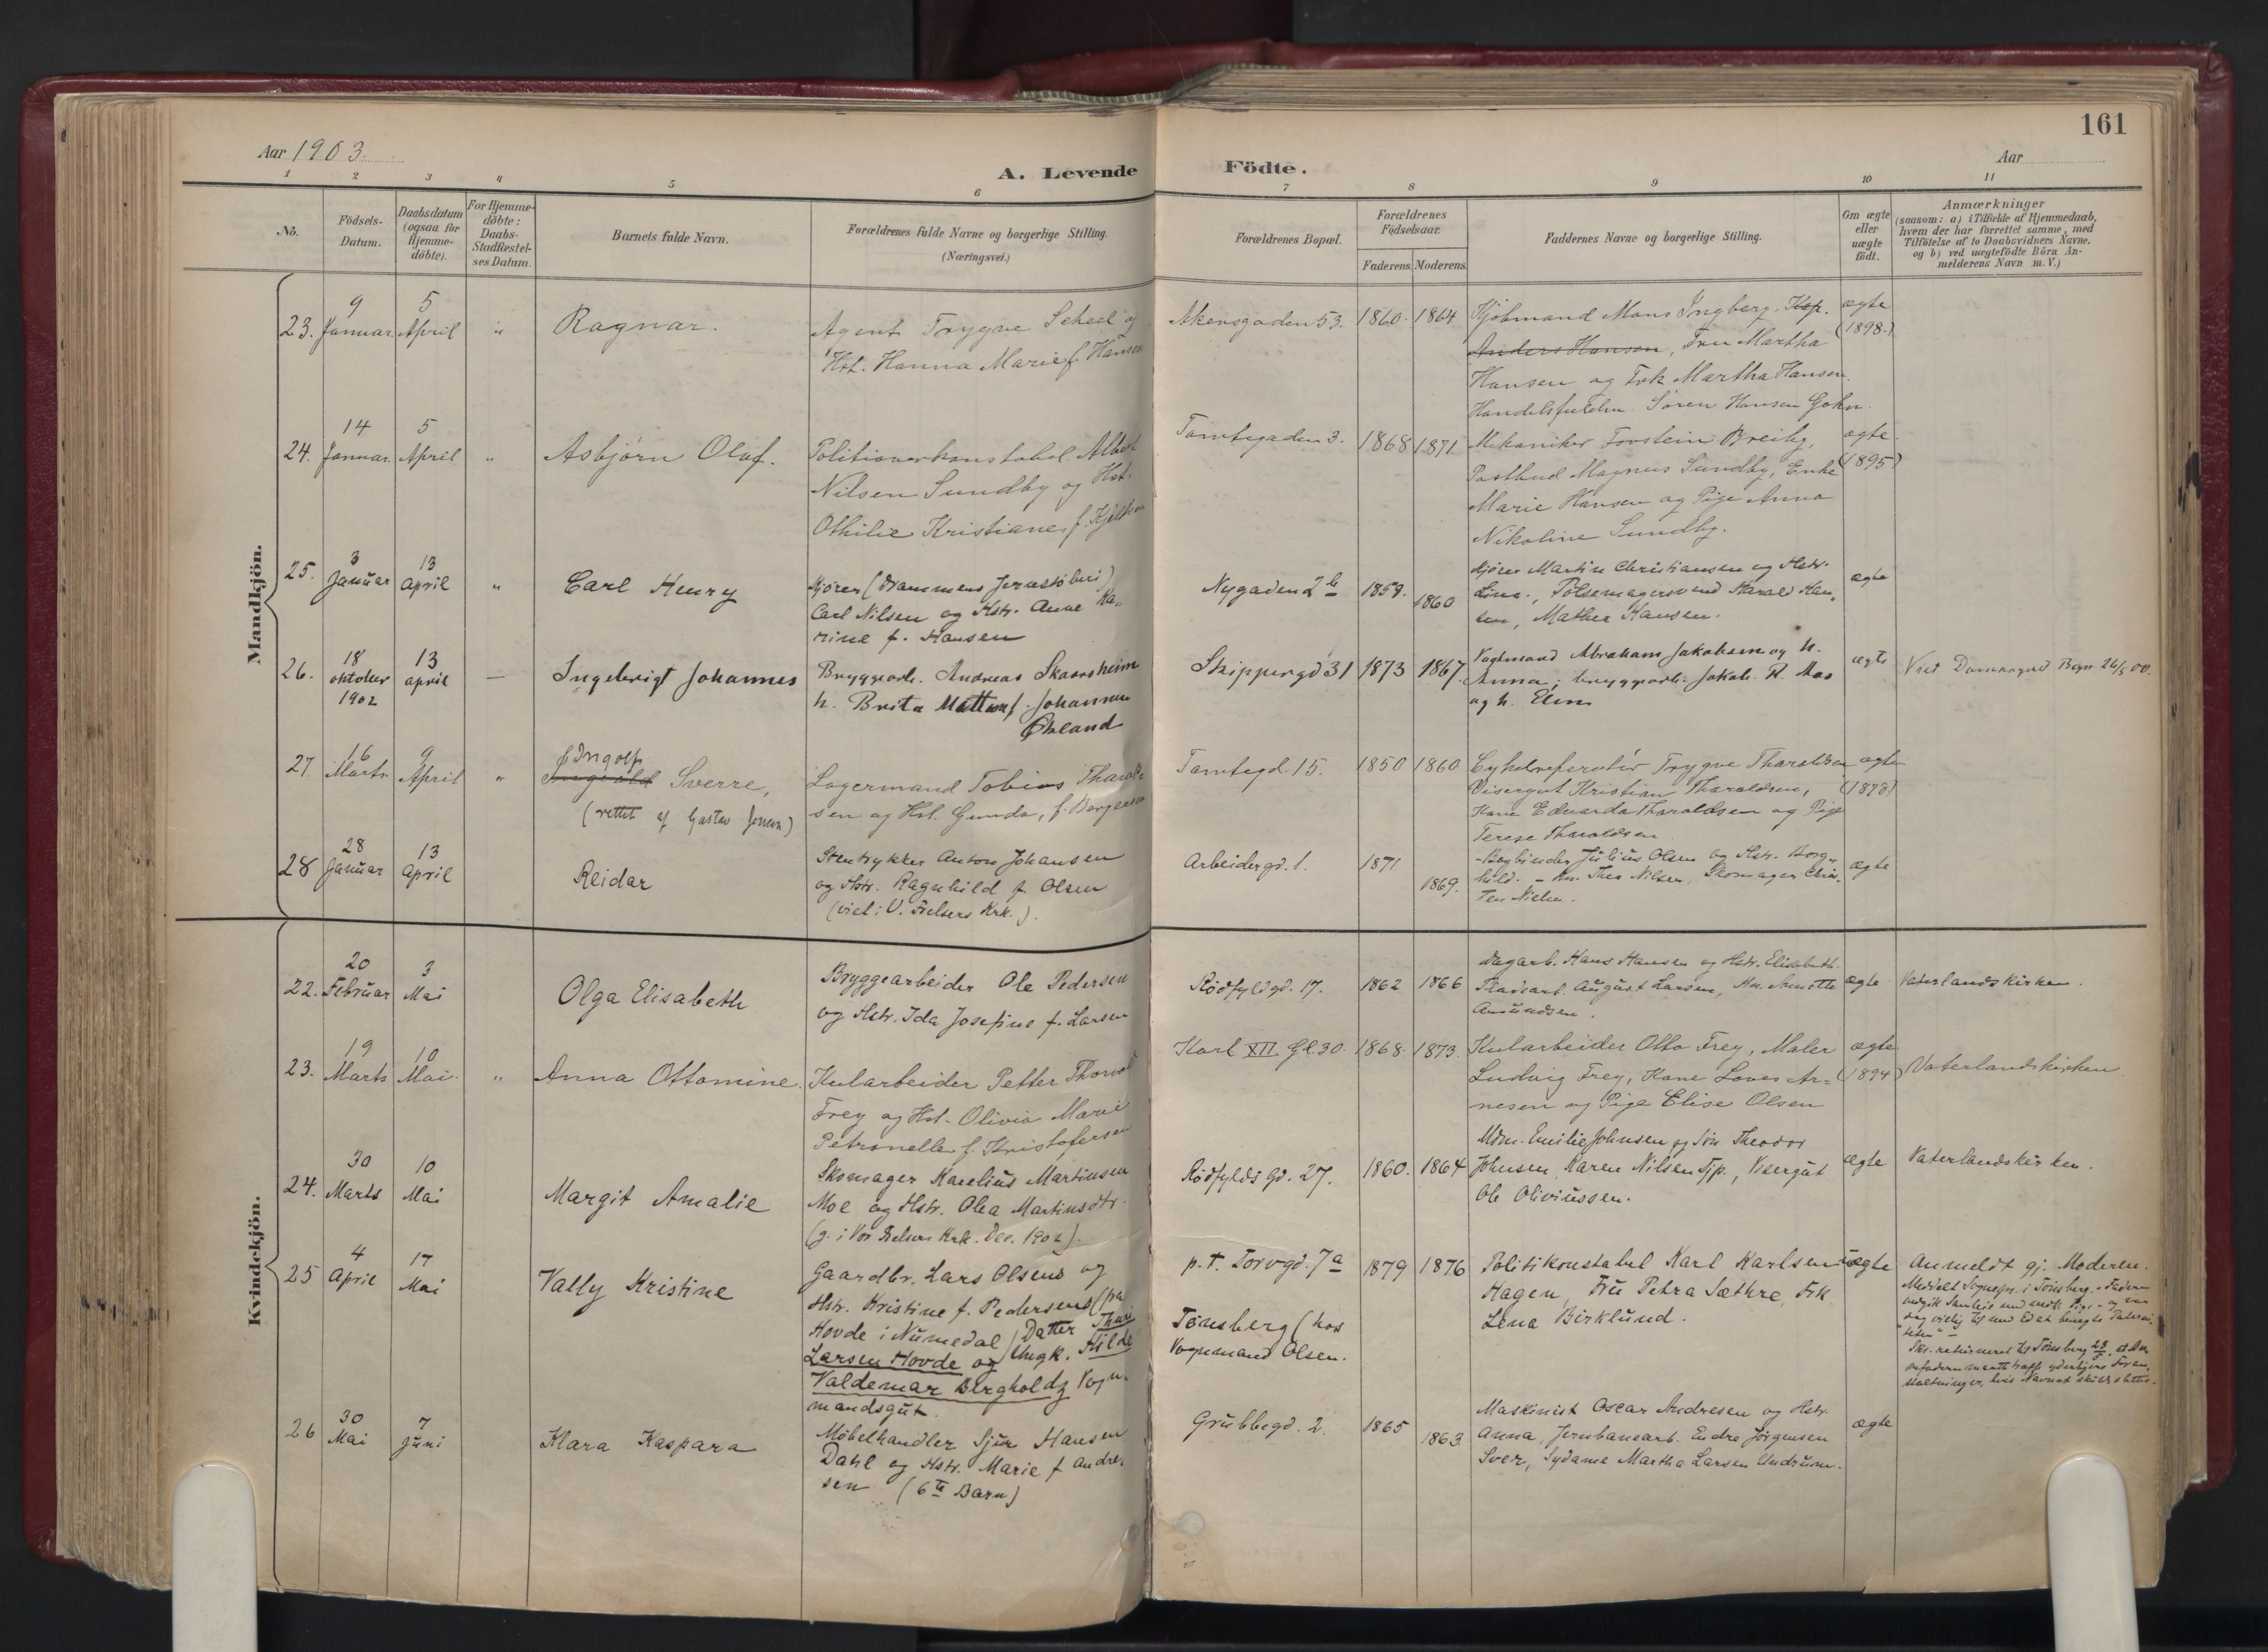 161
Aar 1903.
A. Levende Födte.
Aar
1 2 3 4 5 6 7 8 9 10 11
No.
Födsels-Datum.
Daabsdatum (ogsaa for Hjemme-döbte).
For Hjemme-döbte: Daabs-Stadfæstel-ses Datum.
Barnets fulde Navn.
Forældrenes fulde Navne og borgerlige Stilling.
(Næringsvei.)
Forældrenes Bopæl.
Forældrenes Födselsaar.
Faderens. Moderens.
Faddernes Navne og borgerlige Stilling.
Om ægte eller uægte födt.
Anmærkninger
(saasom: a) i Tilfælde af Hjemmedaab,
hvem der har forrettet samme, med
Tilföielse af to Daabsvidners Navne.
og b) ved uægtefödte Börn An-
melderens Navn m. V.)
Mandkjön.
23. 9 Januar 5 April " Ragnar.
Agent Trygve Scheel og
Hst. Hanna Marie f. Hansen
Akersgaden 53. 1860. 1864
Kjöbmand Mons Ingberg, Ksp.
Anders Hansen, Fru Martha
Hansen og Frk Martha Hansen.
Handelsfuldm. Sören Hansen
ægte
(1898.)
24. 14 Januar. 5 April " Asbjörn Olaf.
Politioverkonstabel Albert
Nilsen Sundby og Hst.
Othilie Kristiane f.
Tomtegaden 3. 1868 1871
Mekaniker Torstein Breiby,
Postbud Magnus Sundby, Enke
Marie Hansen og Pige Anna
Nikoline Sundby.
ægte.
(1895)
25. 3 Januar 13 April " Carl Henry
Kjörer (Drammens Jernstöberi)
Carl Nilsen og Hstr. Anne Ka-
rine f. Hansen
Nygaden 2b 1859. 1860
Kjörer Martin Christiansen og Hstr.
Lina., Pölsemagersvend Harald Han-
sen, Mathea Hansen.
ægte
26. 18 oktober 1902 13 april — Ingebrigt Johannes
Bryggearb. Andreas Skaarsheim
h. Brita f. Johannes
Skippergd 31 1873 1867.
Vognmand Abraham Jakobsen og h.
Anna; bryggearb. Jakob R. Aas
og h. Elen
ægte
Viet Domsogned Bergn 26/5 00.
27. 16 Marts 9 April " Ingolf
Ingvald Sverre,
(rettet af Gustav Jensen)
Lagermand Tobias Tharald-
sen og Hst. Gunda, f. Borgersen
Tomtegd. 15. 1850 1860
Cykelreperatör Trygve Tharaldsen
Visergut Kristian Tharaldsen,
Kone Edvarda Tharaldsen og Pige
Terese Tharaldsen
ægte
(1878)
28 28 Januar 13 April Reidar
Stentrykker Anton Johansen
og Hstr. Ragnhild f. Olsen
(viet i V. Frelsers Krk.).
Arbeidergd. 1. 1871 1869.
-Bogbinder Julius Olsen og Hstr. Borg-
hild. - Kn. Thea Nilsen, Skomager Chris-
ten Nielsen.
ægte
Kvindekjön.
22. 20 Februar 3 Mai Olga Elisabeth
Bryggearbeider Ole Pedersen
og Hstr. Ida Josefine f. Larsen
Rödfyldgd. 17. 1862 1866
Dagarb. Hans Hansen og Hstr. Elisabeth.
August Larsen, Kn. Anette
Amundsen.
ægte
Vaterlandskirken.
23. 19 Marts 10 Mai. " Anna Ottomine.
Kularbeider Petter Thorvald
Frey og Hst. Olivia Marie
Petronelle f. Kristofersen
Karl XII Gd. 30. 1868. 1873.
Kularbeider Otto Frey, Maler
Ludvig Frey, Kone Lovise Ar-
nesen og Pige Elise Olsen
ægte
(1894)
Vaterlandskirken
24. 30 Marts 10 Mai Margit Amalie
Skomager Karelius Martinsen
Moe og Hstr. Olea Martinsdtr.
(g. i Vor Frelsers Krk. Dec. 1902).
Rödfylds gd. 27. 1860. 1864
Mdm. Emilie Johnsen og Sön Theodor
Johnsen, Karen Nilsen Tjp., Visergut
Ole Oliviussen.
ægte
Vaterlandskirken.
25 4 April 17 Mai Vally Kristine
Gaardbr. Lars Olsens og
Hstr. Kristine f. Pedersens (paa
Hovde i Numedal) Datter Thuri
Larsen Hovde og Ungk. Hilde
Valdemar Bergholdz Vogn-
mandsgut.
p.t. Torvgd. 7a 1879 1876
Tönsberg (hos
Vognmand Olsen.
Politikonstabel Karl Karlsen
Hagen, Fru Petra Sæthre, Frk.
Lena Birklund.
uægte
Anmeldt gj. Moderen.
Meddelt Sognepr. i Tönsberg. - Faderen
26 30 Mai 7 Juni Klara Kaspara
Möbelhandler Sjur Hansen
Dahl og Hstr. Marie f. Andre-
sen (6te Barn)
Grubbegd. 2. 1865 1863
Maskinist Oscar Andresen og Hstr.
Anna, Jernbanearb. Endre Jörgensen
Sver, Sydame Martha Larsen Undrum.
ægte